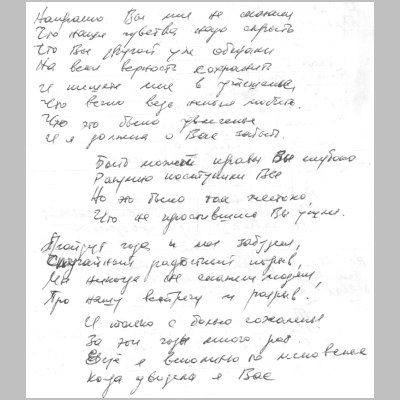 Напрасно Вы мне не сказали
Что наши чувства надо скрыть
Что Вы другой уже обещали
На веки верность сохранить
И шепчете мне в утешенье
Что Вас ведь нельзя любить.
Что это было увлеченье
И я должна о Вас забыть.
Быть может правы Вы глубоко
Разумно поступили Все
Но это было так жестоко,
Что не простившись Вы ушли.
Пройдут года и мы забудем,
Случайный радостный порыв,
Мы никогда не скажем людям,
Про нашу встречу и разрыв.
И только с болью сожаленья
За эти годы много раз
Ещё я вспомню то мгновенье
Когда увидела я Вас